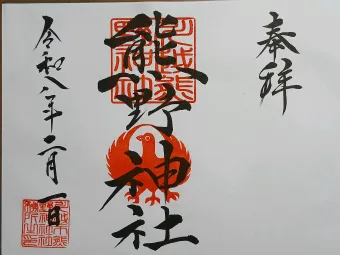 奉拝
熊野神社
令和八年二月一日